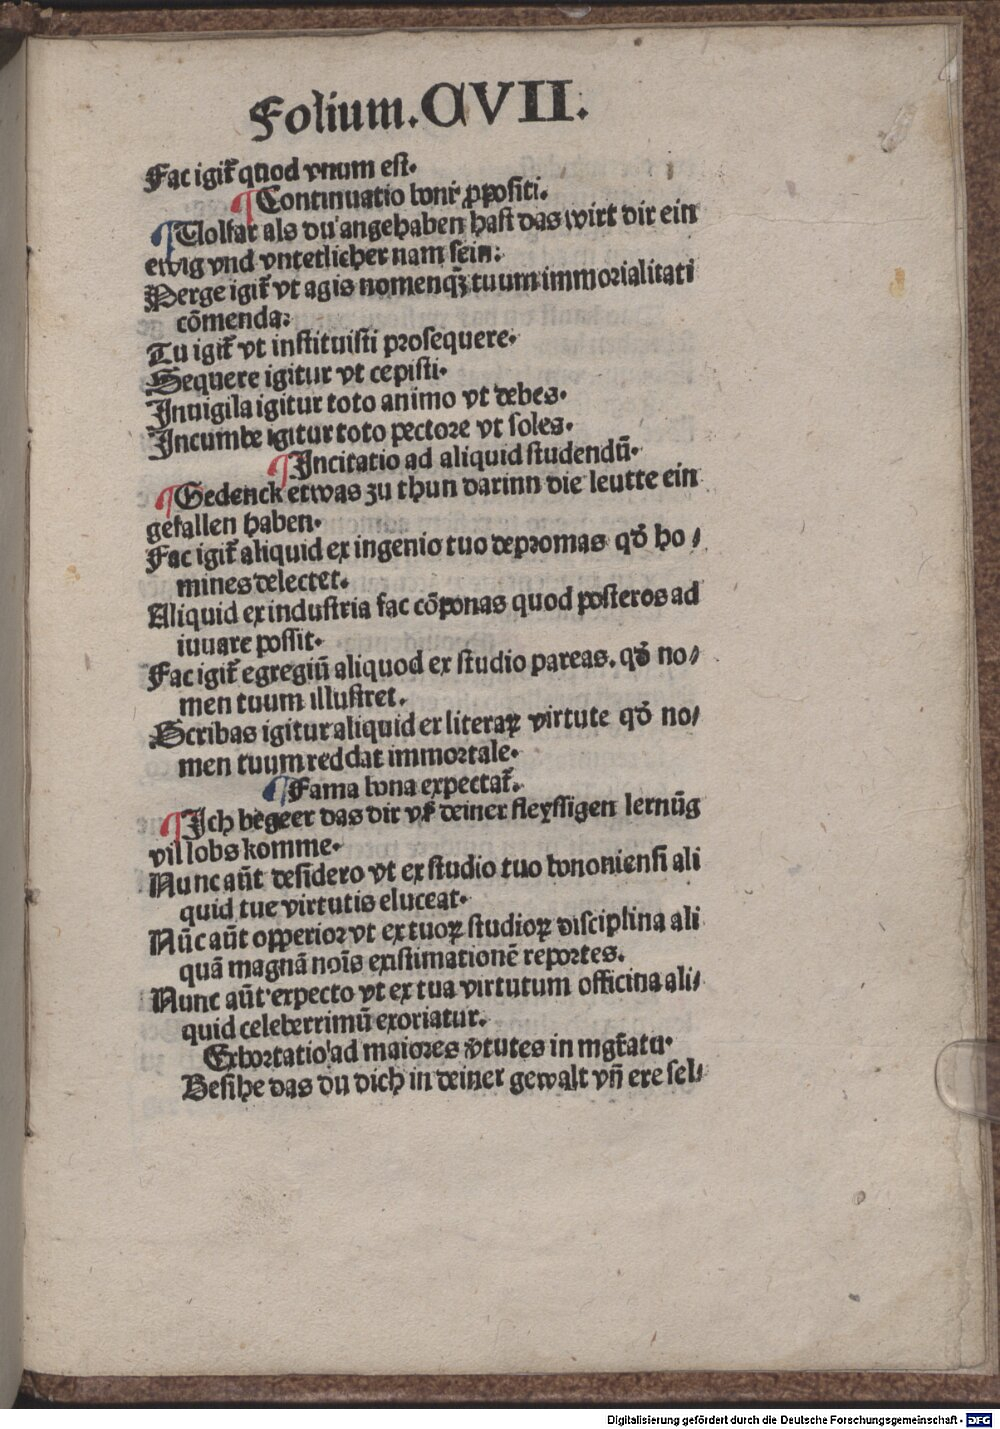 Folium.CVII.
Fac igit̄ quod vnum est.
¶Continuatio boni ꝓpositi.
¶Volfar als du angehaben hast das wirt dir ein
ewig vnd vntetlicher nam sein:
Perge igit̄ vt agis nomenqꝫ tuum immorialitati
cōmenda:
Tu igit̄ vt instituisti prosequere.
Sequere igitur vt cepisti.
Inuigila igitur toto animo vt debes.
Incumbe igitur toto pectore vt soles.
¶Incitatio ad aliquid studendū.
¶Gedenck etwas zu thun darinn die leutte ein
gefallen haben.
Fac igit̄ aliquid ex ingenio tuo depromas qđ ho/
mines delectet.
Aliquid ex industria fac cōponas quod posteros ad
iuuare possit.
Fac igit̄ egregiū aliquod ex studio pareas. qđ no/
men tuum illustret.
Scribas igitur aliquid er literaꝝ virtute qđ no/
men tuum reddat immortale.
¶Fama bona expectat̄.
¶Ich begeer das dir vß deiner fleyssigen lernūg
vil lobs komme.
Nunc aūt desidero vt ex studio tuo bononiensi ali
quid tue virtutis eluceat.
Nūc aūt opperior vt ex tuoꝝ studioꝝ disciplina ali
quā magnā noīs existimationē reportes.
Nunc aūt expecto vt ex tua virtutum officina ali/
quid celeberrimū exoriatur.
Exhortatio ad maiores v̓tutes in mgr̄atu.
Besihe das du dich in deiner gewalt vn̄ ere sel/
Digitalisierung gefördert durch die Deutsche Forschungsgemeinschaft - DFG